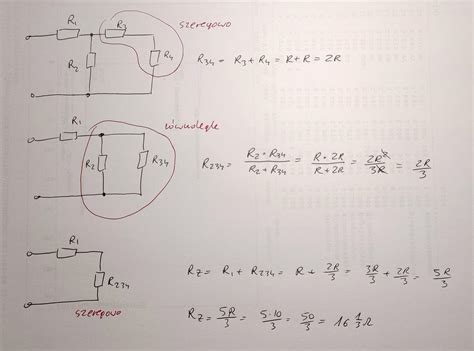 szeregowo
R₁ R₃
R₂ R₄
R₃₄ = R₃ + R₄ = R + R = 2R
równolegle
R₁
R₂ R₃₄
R₂₃₄ = (R₂ · R₃₄)/(R₂ + R₃₄) = (R · 2R)/(R + 2R) = 2R²/3R = 2R/3
R₁
R₂₃₄
szeregowo
Rz = R₁ + R₂₃₄ = R + 2R/3 = 3R/3 + 2R/3 = 5R/3
Rz = 5R/3 = 5·10/3 = 50/3 = 16 1/3 Ω